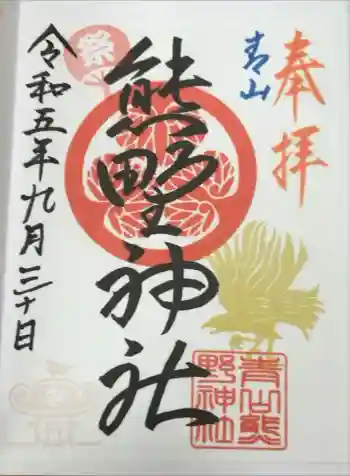 奉拝
青山
熊野神社
令和五年九月三十日
祭り
青山熊
野神社